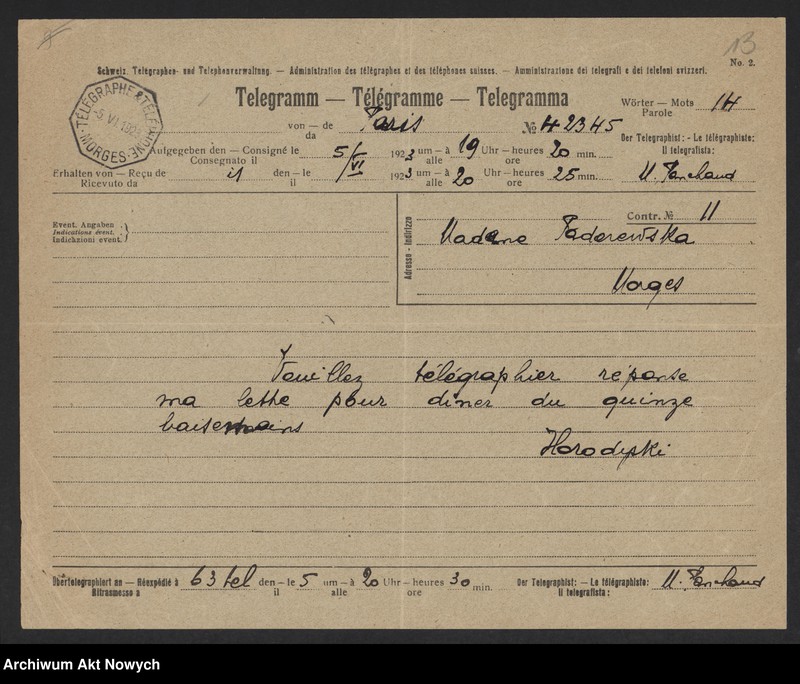 13
No. 2.
Schweiz. Telegraphen- und Telephonverwaltung. — Administration des télégraphes et des téléphones suisses. — Amministrazione dei telegrafi e dei telefoni svizzeri.
Telegramm — Télégramme — Telegramma
Wörter — Mots 14
Parole
TÉLÉGRAPHE & TÉLÉPHONE
MORGES
von — de Paris № 42345
da
Der Telegraphist: - Le télégraphiste:
Il telegrafista:
Aufgegeben den — Consigné le 5/VI 1923 um — à 19 Uhr — heures 20 min.
Consegnato il alle ore
Erhalten von — Reçu de il den — le 1923 um — à 20 Uhr — heures 25 min.
Ricevuto da il alle ore
Contr. № 11
Event. Angaben
Indications évent.
Indichzioni event.
Adresse - Indirizzo
Madame Paderewska
Morges
Veuillez télégraphier reponse
ma lettre pour diner du quinze
baisemains
Horodyski
Übertelegraphiert an — Réexpédié à 63 tel den — le 5 um — à 20 Uhr — heures 30 min.
Ritrasmesso a il alle ore
Der Telegraphist: — Le télégraphiste:
Il telegrafista:
Archiwum Akt Nowych